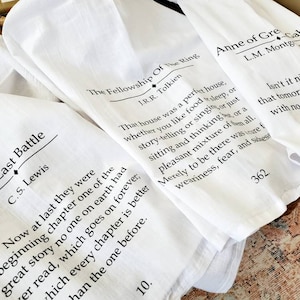 Last Battle
C.S. Lewis
Now at last they were
beginning chapter one of the
great story no one on earth had
ever read, which goes on forever,
which every chapter is better
than the one before.
10.
The Fellowship Of The Ring
J.R.R. Tolkien
That house was a perfect house,
whether you like food or sleep, or
story-telling or singing, or just
sitting and thinking best, or a
pleasant mixture of them all.
Merely to be there was a cure for
weariness, fear, and sadness.
362
Anne of Gre Gab
L.M. Montgo
Isn't it n
that tomorro
with no